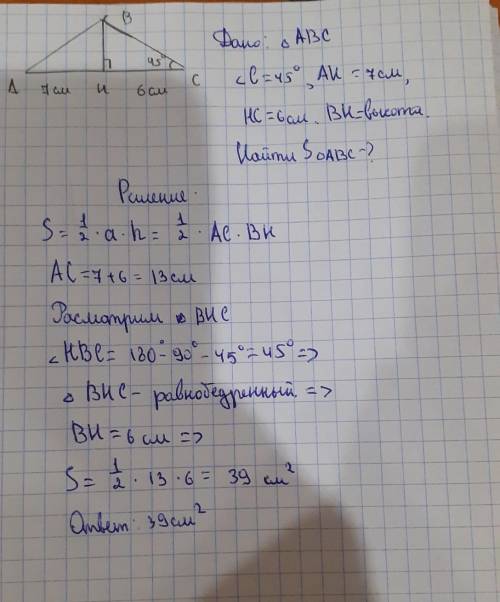 B
45°
A 7см H 6см C
Дано: △ABC
∠C=45°, AH=7см,
HC=6см. BH=высота.
Найти S△ABC-?
Решение.
S= 1/2 · a · h = 1/2 · AC · BH
AC=7+6=13см
Росмотрим △ BHC
∠HBC= 180°-90°-45°=45° =>
△ BHC- равнобедренный =>
BH=6см =>
S= 1/2 · 13 · 6 = 39 см²
Ответ: 39см²